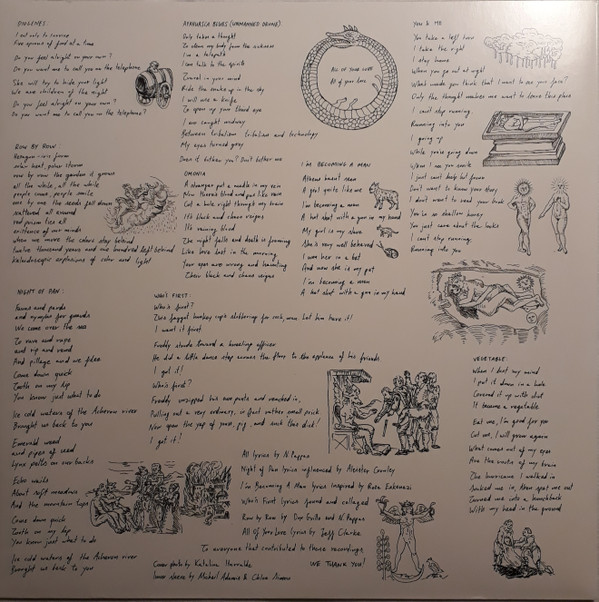 DIOGENES:
I eat only to survive
Five spoons of food at a time
Do you feel alright in your room?
Do you want me to call you on the telephone
She will try to hide your light
We are children of the night
Do you feel alright in your room?
Do you want me to call you on the telephone?
ROW BY ROW:
row by row the garden it grows
all the while, at the while
purple snow, people smile
one by one the seeds fall down
scattered all around
existence of our minds
when we move the colour stay behind
twelve thousand years and one hundred left behind
Kaleidoscopic explosions of color and light
NIGHT OF PAN:
Fauns and pards
and nymphs for guards
We come over the sea
To rave and rape
and rip and rend
And pillage and we flee
Come down quick
Tooth on my lip
You know just what to do
Ice cold waters of the Acheron river
Brought us back to you
Emerald weed
and pipes of reed
Lynx pelts on our backs
Echo wails
About soft meadows
And the mountain tops
Come down quick
Tooth on my lip
You know just what to do
Ice cold waters of the Acheron river
Brought us back to you
AYAHUASCA BLUES (UNMANNED DRONE):
Only takes a thought
To allow my body from the sickness
I'm a telepath
I can talk to the spirits
Travel in your mind
Ride the snake up in the sky
I will use a knife
To open up your third eye
I am caught midway
Between tribalism and technology
My eyes turned grey
Does it bother you? Don't bother me
OMONIA
A stranger put a needle in my vein
Cut a hole right through my brain
It's thick and chaos verges
It's running blood
The night falls and death is forming
Like love lost in the morning
Your eyes are wrong and haunting
Their black and chaos verges
ALL OF YOUR LOVE
All of your love
I'M BECOMING A MAN
Athens haunt seen
A goat quite like me
I'm becoming a man
A hot shot with a gun in my hand
My girl is my share
She's very well behaved
I won her in a bet
And now she is my pet
I'm becoming a man
A hot shot with a gun in my hand
WHO'S FIRST:
Who's first?
I want it first
Freddy stands toward a haunting officer
He did a little dance step across the floor to the applause of his friends
I got it!
Who's first?
Freddy unzipped his own pants and reached in,
Pulling out a very ordinary, in fact rather small prick
Now open the yap of yours, pig, and suck this dick!
I got it!
All lyrics by N.Pappas
Night of Pan lyrics influenced by Aleister Crowley
I'm Becoming A Man lyrics inspired by
Who's First lyrics found and collaged
Row by Row by and N.Pappas
All Of Your Love lyrics by Jeff Clarke
To everyone that contributed to these recordings
WE THANK YOU!
Cover photo by Katalina
Inner sleeve by
YOU & ME
You take a left turn
I take the right
I stay home
When you go out at night
What made you think that I want to see your face?
Only the thought makes me want to leave this place
I can't stop running,
Running into you
I going up
While you're going down
When I see you smile
I just can't help but frown
Don't want to know your story
I don't want to read your book
You're so shallow honey
You just care about the looks
I can't stop running
Running into you
VEGETABLE:
When I lost my mind
I put it down in a hole
Covered it up with shit
It became a vegetable
Eat me, I'm good for you
Cut me, I will grow again
What comes out of my eyes
Are the roots of my brain
The hurricane I walked in
Sucked me in, then spat me out
Turned me into a hunchback
With my head in the ground